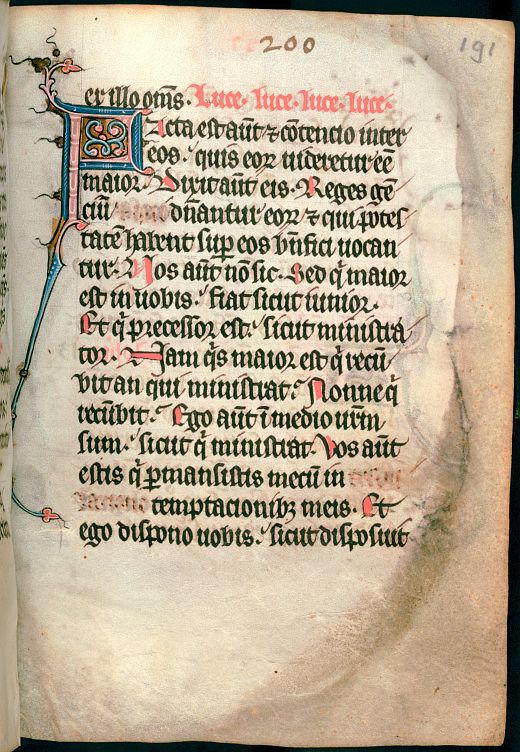 200
191
ex illo om̄s. Luce. luce. luce. luce.
Facta est aūt ⁊ cōtencio inter
eos. quis eoꝝ uideretur eē
maior. Dixit aūt eis. Reges gē
ciū dn̄antur eoꝝ ⁊ qui p̄otes
tatē habent sup eos bn̄fici uocan
tur. Vos aūt nō sic. Sed q̄ maior
est in uobis. fiat sicut iunior.
Et q̄ precessor est. sicut ministra
tor. Nam q̄s maior est q̄ recū
bit an qui ministrat. Nonne q̄
recūbit. Ego aūt ī medio ur̄m
sum. sicut q̄ ministrat. Vos aūt
estis q̄ ꝑmansistis mecū in
temptacionibꝫ meis. Et
ego dispono uobis. sicut disposuit